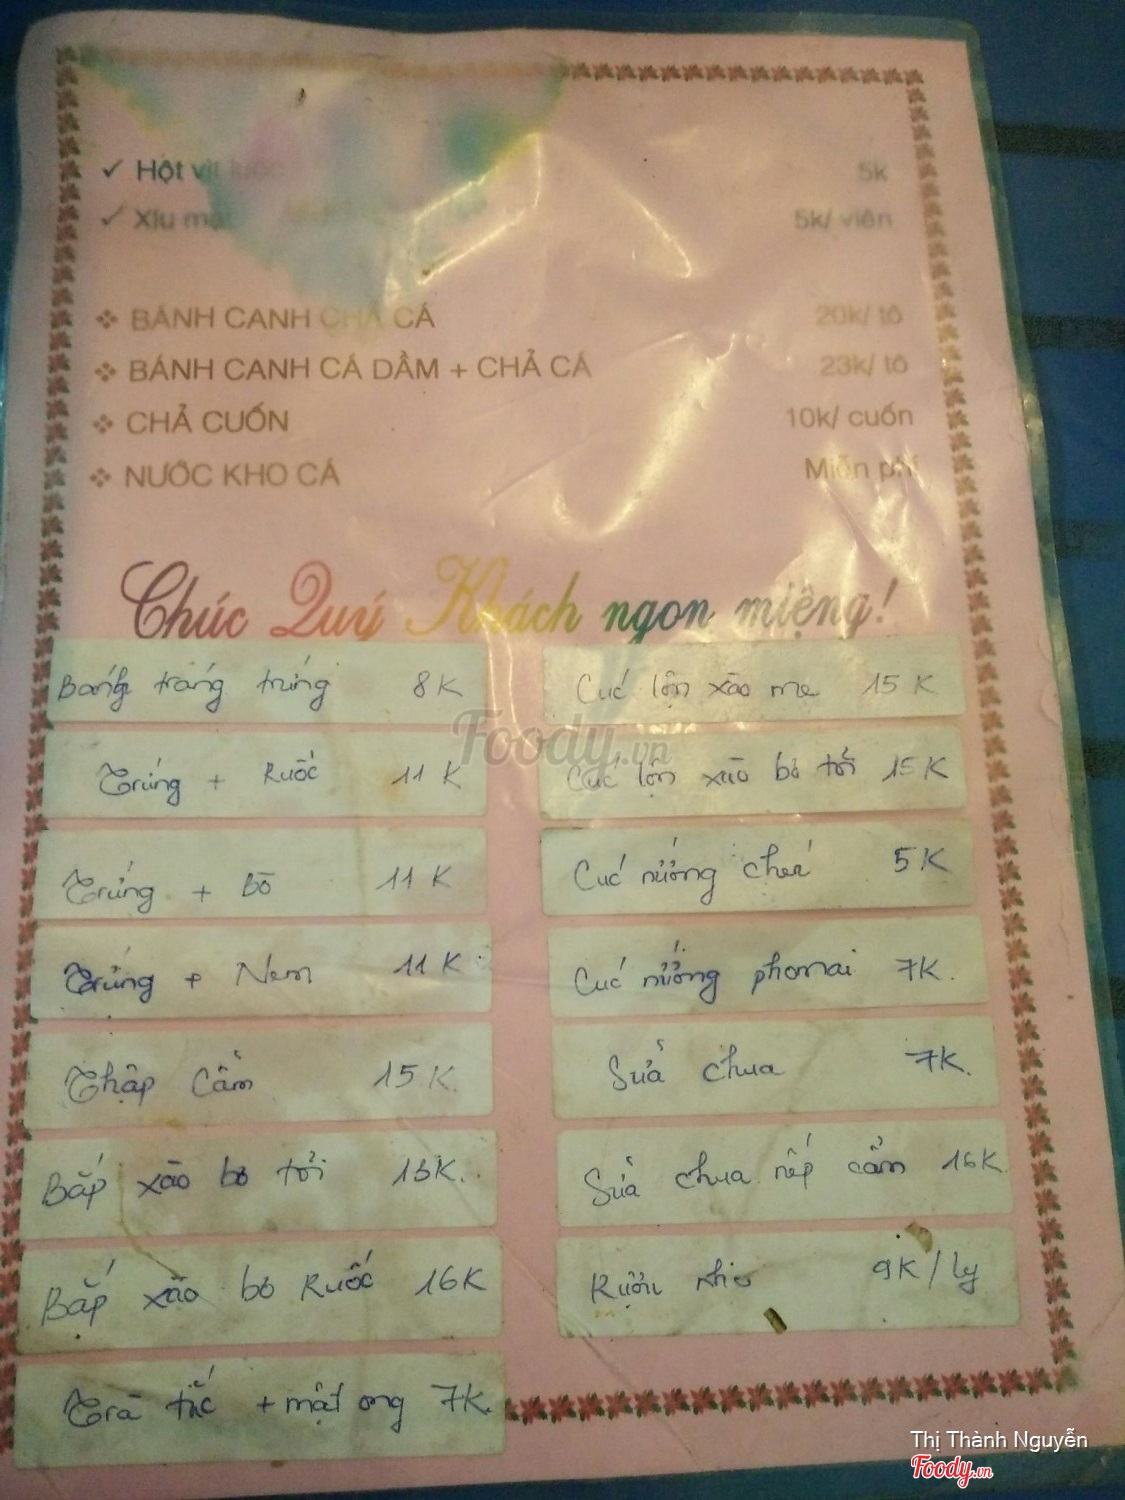 ✓ Hột vịt 5k
✓ Xíu mại 5k/ viên
❖ BÁNH CANH CHẢ CÁ 20k/ tô
❖ BÁNH CANH CÁ DẦM + CHẢ CÁ 23k/ tô
❖ CHẢ CUỐN 10k/ cuốn
❖ NƯỚC KHO CÁ Miễn phí
Chúc Quý Khách ngon miệng!
Bánh tráng trứng 8K
Trứng + Ruốc 11K
Trứng + bò 11K
Trứng + Nem 11K
Thập cẩm 15K.
Bắp xào bơ tỏi 13K.
Bắp xào bơ Ruốc 16K
Trà tắc + mật ong 7K.
Cút lộn xào me 15K
Cút lộn xào bơ tỏi 15K
Cút nướng 5K
Cút nướng phomai 7K.
Sữa chua 7K.
Sữa chua nếp cẩm 16K
Rượu nho 9K/ly
Foody.vn
Thị Thành Nguyễn
Foody.vn